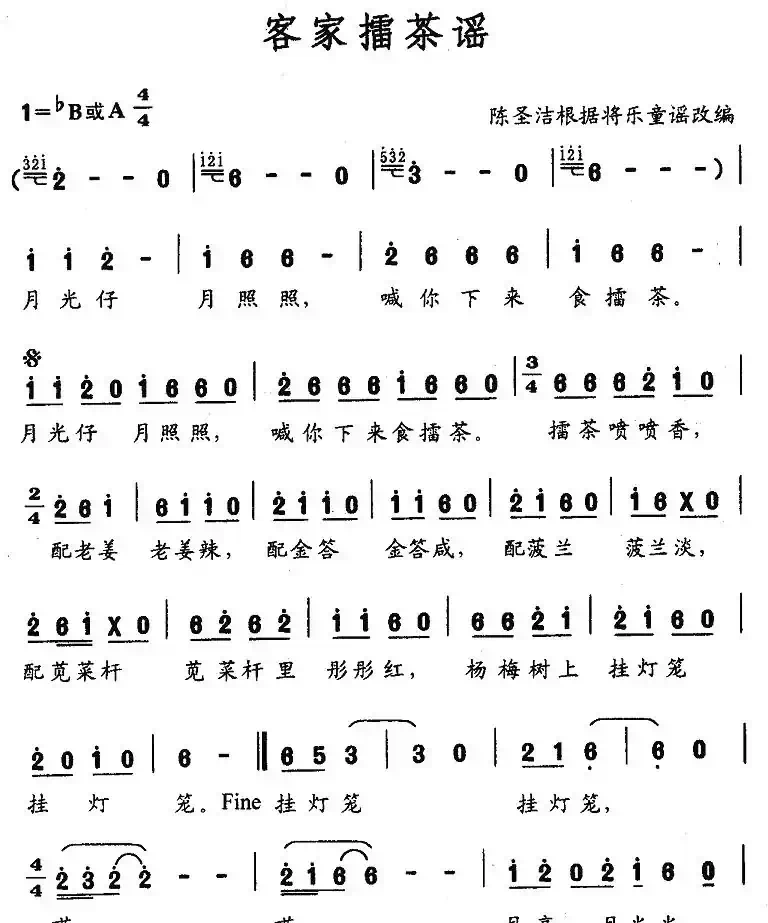 客家擂茶谣
1=♭B或A 4/4
陈圣洁根据将乐童谣改编
(3̇2̇1̇ 2̇ - - 0 | 1̇2̇1̇ 6 - - 0 | 5̇3̇2̇ 3̇ - - 0 | 1̇2̇1̇ 6 - - -) |
1̇ 1̇ 2̇ - | 1̇ 6 6 - | 2̇ 6 6 6 | 1̇ 6 6 - |
月光仔 月照照, 喊你下来 食擂茶。
1̇ 1̇ 2̇ 0 1̇ 6 6 0 | 2̇ 6 6 6 1̇ 6 6 0 | 3/4 6 6 6 2̇ 1̇ 0 |
月光仔 月照照, 喊你下来食擂茶。 擂茶喷喷香,
2/4 2̇ 6 1̇ | 6 1̇ 1̇ 0 | 2̇ 1̇ 1̇ 0 | 1̇ 1̇ 6 0 | 2̇ 1̇ 6 0 | 1̇ 6 X 0 |
配老姜 老姜辣, 配金答 金答咸, 配菠兰 菠兰淡,
2̇ 6 1̇ X 0 | 6 2̇ 6 2̇ | 1̇ 1̇ 6 0 | 6 6 2̇ 1̇ | 2̇ 1̇ 6 0 |
配苋菜杆 苋菜杆里 彤彤红, 杨梅树上 挂灯笼
2̇ 0 1̇ 0 | 6 - ‖ 6 5 3 | 3 0 | 2 1 6̣ | 6̣ 0 |
挂 灯 笼。Fine 挂灯笼 挂灯笼,
4/4 2̇ 3̇ 2̇ 2̇ - - | 2̇ 1̇ 6 6 - - | 1̇ 2̇ 0 2̇ 1̇ 6 0 |